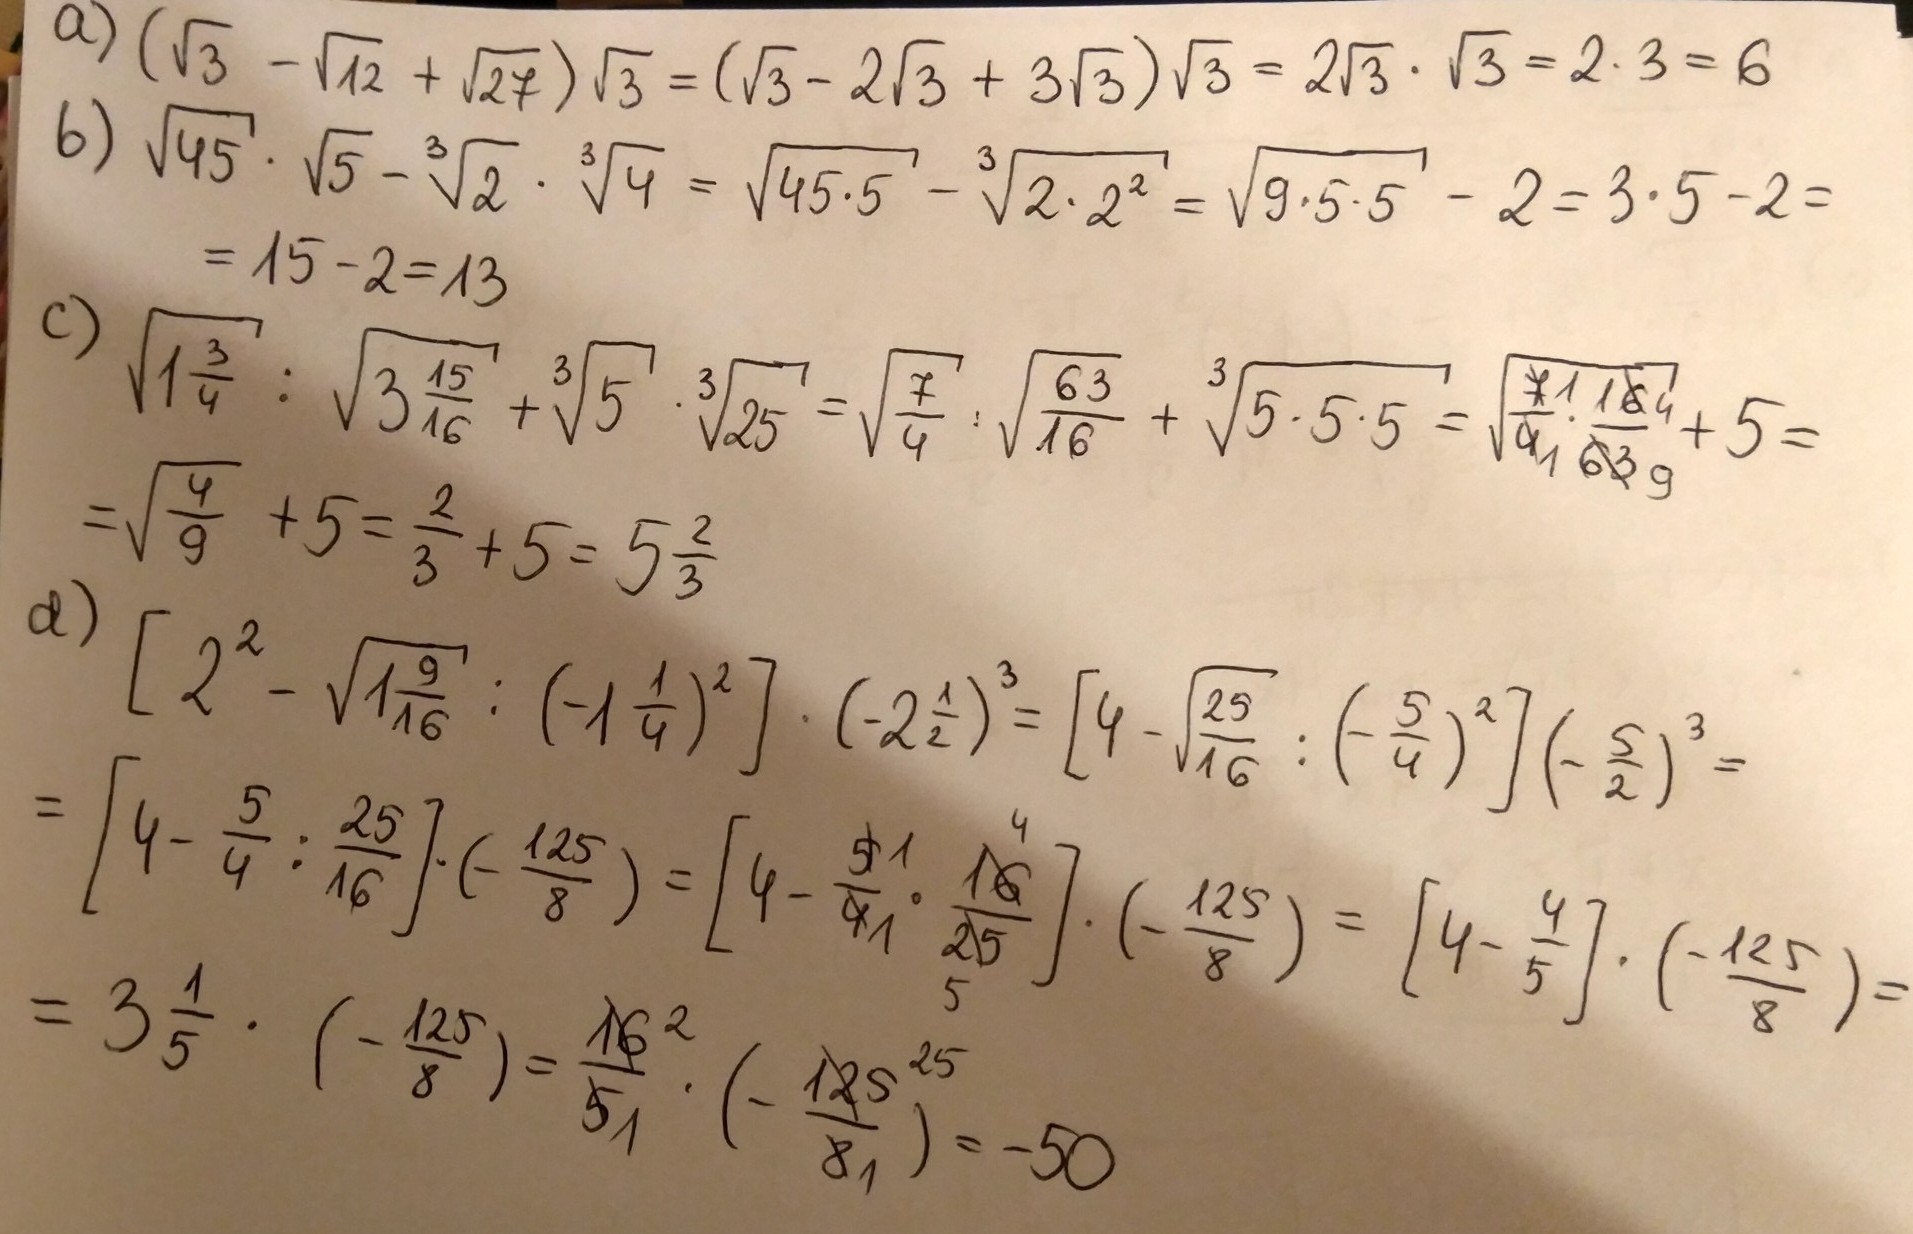 a) (√3 − √12 + √27) √3 = (√3 − 2√3 + 3√3) √3 = 2√3 · √3 = 2 · 3 = 6
b) √45 · √5 − ∛2 · ∛4 = √(45·5) − ∛(2·2²) = √(9·5·5) − 2 = 3·5 − 2 =
= 15 − 2 = 13
c) √(1 3/4) : √(3 15/16) + ∛5 · ∛25 = √(7/4) : √(63/16) + ∛(5·5·5) = √(7 1/4 1 · 16 4/63 9) + 5 =
= √(4/9) + 5 = 2/3 + 5 = 5 2/3
d) [2² − √(1 9/16) : (−1 1/4)²] · (−2 1/2)³ = [4 − √(25/16) : (−5/4)²] (−5/2)³ =
= [4 − 5/4 : 25/16] · (−125/8) = [4 − 5 1/4 1 · 16 4/25 5] · (−125/8) = [4 − 4/5] · (−125/8) =
= 3 1/5 · (−125/8) = 16 2/5 1 · (−125 25/8 1) = −50